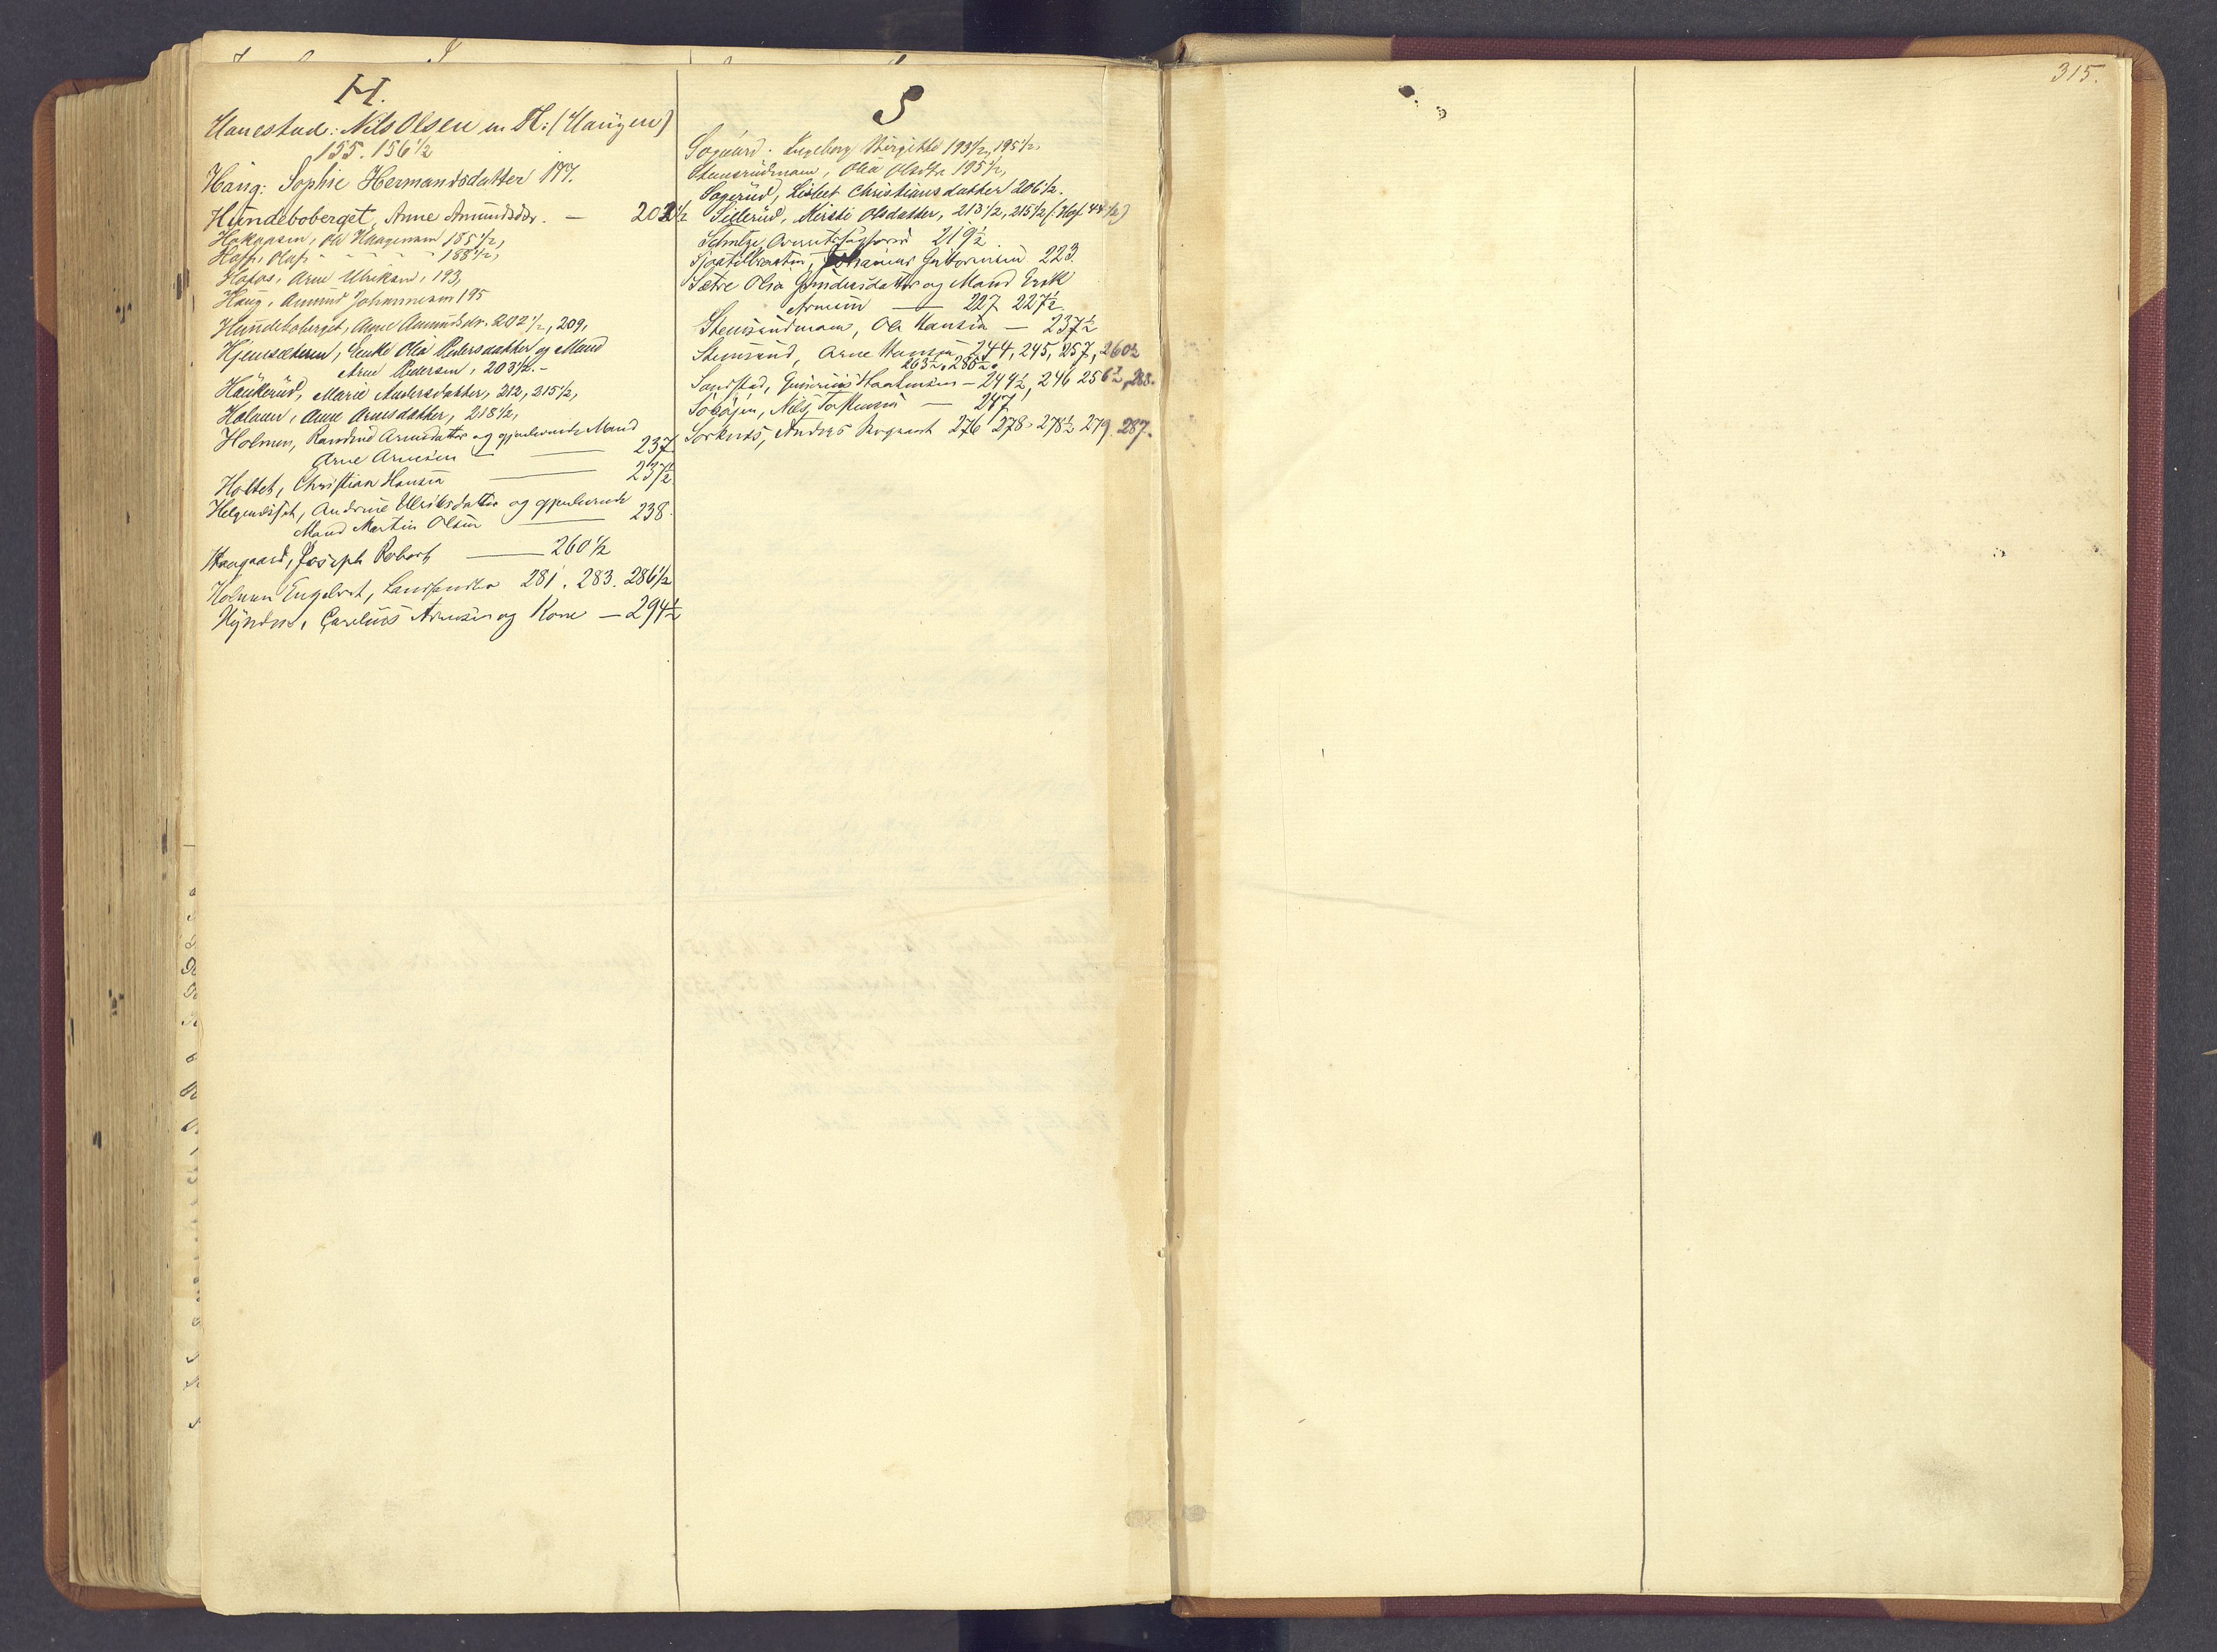 H.
Hanestad: Nils Olsen m H: (Haugen)
155. 156½
Haug: Sophie Hermandsdatter 177.
Hundeboberget, Anne Amundsdr. — 202½
Haagensen 185½,
Hoff, Olaf - - - - - 188½,
Arne Ulriksen, 193,
Haug, Amund Johannesen 195
Hundeboberget, Anne Amundsdr. 202½, 209,
Hjemsæteren, Enke Olea Pedersdatter og Mand
Arne Pedersen, 203½.-
Haukerud, Marie Andersdatter, 212, 215½,
Holmen, Anne Arnesdatter, 218½,
Holmen, Randine Arnesdatter og gjenlevende Mand
Arne Arnesen — 237
Holtet, Christian Hansen — 237½
Andrine Ulriksdatter og gjenlevende
Mand Martin Olsen — 238.
Haagaard, Joseph Robert — 260½
Holmen Engebret, Landhandler 281. 283. 286½
Carelius Arnesen og Kone — 294½
S
Ingeborg Birgitte 193½, 195½,
Stensrudmoen, Olea Olsdtr 195½,
Sagerud, Lisbet Christiansdatter 206½.
Sillerud, Kirsti Olsdatter, 213½, 215½ (Hof 44½)
Schulze, 219½
Johannes Guttormsen 223.
Sætre Olea Gundersdatter og Mand Erik
Arnesen — 227 227½
Stensrudmoen, Ole Hansen — 237½
Stensrud, Arne Hansen 244, 245, 257, 260½
263½, 285½.
Sandstad, Gunerius — 244½, 246 256½, 288.
Nils Torstensen — 247
Sorknes, Andreas 276 278 278½ 279. 287.
315.